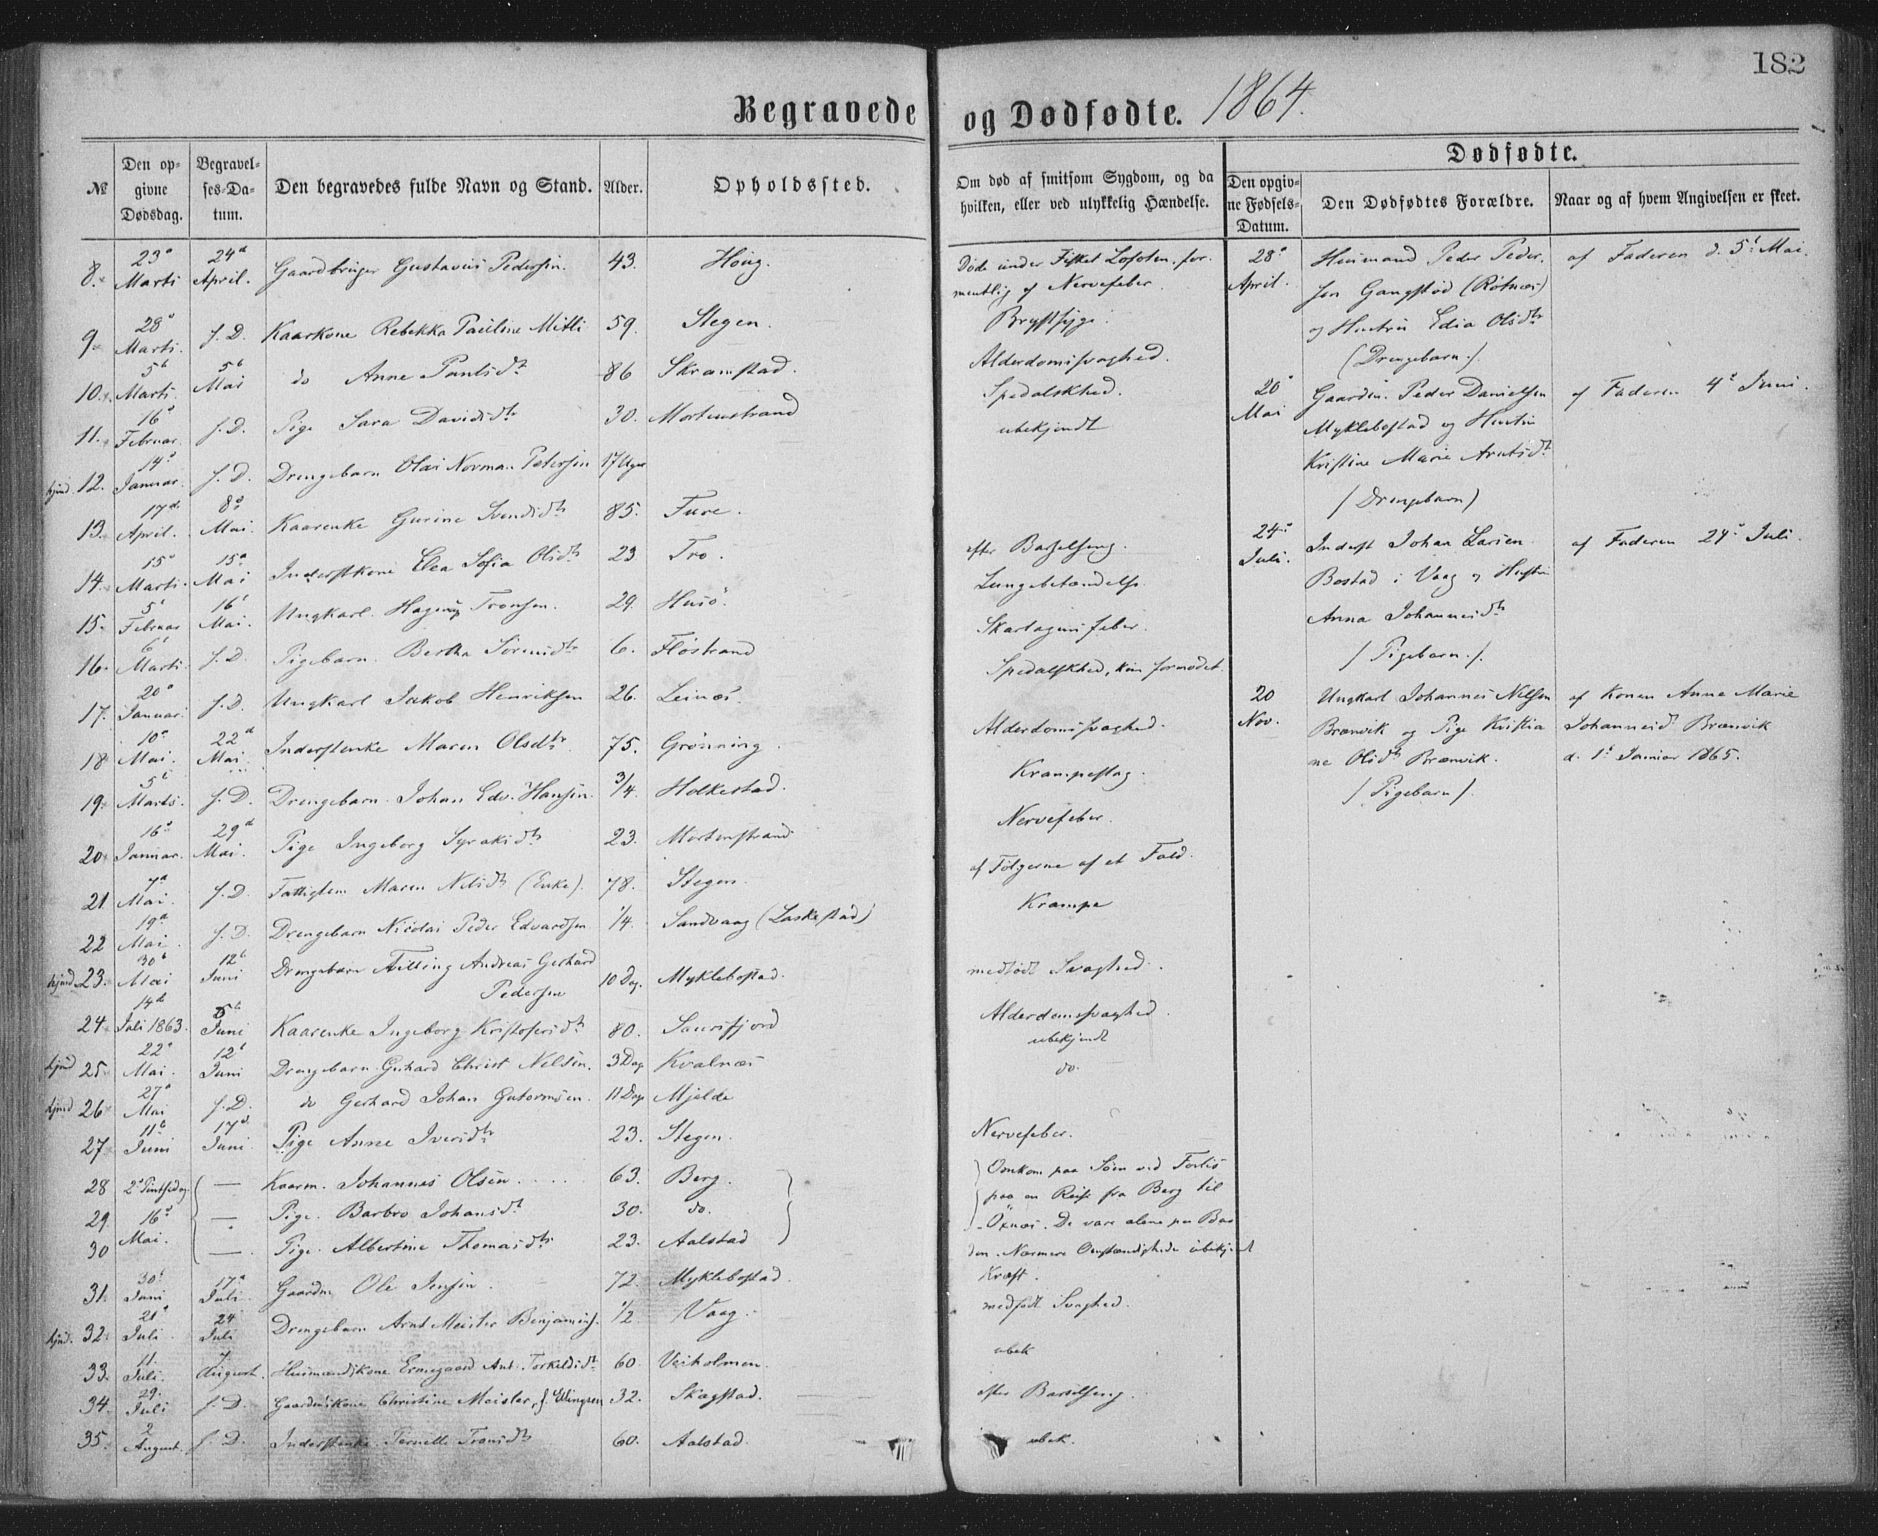 182
Begravede og Dødfødte. 1864.
№ Den opgivne Dødsdag. Begravelses-Datum. Den begravedes fulde Navn og Stand. Alder. Opholdssted. Om død af smitsom Sygdom, og da hvilken, eller ved ulykkelig Hændelse.
Dødfødte.
Den opgivne Fødsels-Datum. Den Dødfødtes Forældre. Naar og af hvem Angivelsen er skeet.
8. 23 Marts 24 April. Gaardbruger Gustavus Pedersen. 43. Høug. Døde under Fisket Lofoten, formentlig af Nervefeber.
9. 28 Marts. s. D. Kaarkone Rebekka Pauline 59. Stegen. Brystsyge
10. 5 Marts. 5 Mai do Anne Paulsdt 86 Skramstad. Alderdomssvaghed.
11. 16 Februar. s. D. Pige Sara Davidsdt 30. Mortenstrand Spedalskhed.
kjend. 12. 14 Januar. s. D. Drengebarn Olai Norman Petersen 17 Uger ubekjendt
13. 17 April. 8 Mai. Kaarenke Gurine Svendsdt 85. Fure.
14. 15 Marts. 15 Mai Inderstkone Elea Sofia Olsdt 23 Tro. efter Barselseng.
15. 5 Februar 16 Mai. Ungkarl. Hagerup Tronsen. 29. Husö. Lungebetændelse.
16. 6 Marts. s. D. Pigebarn. Bertha Sörensdt 6. Flöstrand Skarlagensfeber.
17. 20 Januar. s. D. Ungkarl Jakob Henriksen 26. Leinæs. Spedalskhed, kun formodet.
18 10 Mai. 22 Mai. Inderstenke Maren Olsdtr 75. Grönning. Alderdomssvaghed.
19. 5 Marts. s. D. Drengebarn. Johan Edv. Hansen. 3/4. Holkestad. Krampeslag.
20. 16 Januar. 29 Mai. Pige Ingeborg Syraksdt 23. Mortenstrand Nervefeber.
21 7 Mai. s. D. Fattiglem Maren Nilsdt (Enke). 78. Stegen. af Fölgerne af et Fald.
22 19 Mai. s. D. Drengebarn Nicolai Peder Edvardsen 1/4. Sandvaag (Laskestad) Krampe
kjend 23. 30 Mai 12 Juni Drengebarn Andreas Gerhard Pedersen 10 Dag. Myklebostad. medfödt Svaghed.
24. 14 Juli 1863. 5 Juni Kaarenke Ingeborg Kristofersdt 80. Saursfjord Alderdomssvaghed.
kjend 25. 22 Mai. 12 Juni Drengebarn. Gerhard Christ Nelsen. 3 Dag Kvalnæs ubekjendt
kjend 26. 27 Mai s. D. do Gerhard Johan Gutormsen. 11 Dage Mjelde do.
27. 11 Juni 17 Juni Pige Anne Iversdt 23. Stegen. Nervefeber.
28 2 Pintsedag — Kaarm. Johannes Olsen 63. Berg. Omkom paa Söen ved
29. 16 Mai. — Pige. Barbro Johansdt 30. do. paa en Reise fra Berg til
30 — Pige. Albertine Thomasdt 23. Aalstad Öxnæs. De vare alene paa Baaden. Nærmere Omstændigheder ubekjendt
31. 30 Juni 17 Juli. Gaardm. Ole Jensen. 72. Myklebostad. Kræft.
kjend. 32. 21 Juli. 24 Juli Drengebarn Arnt Meisler Benjamins. 1/2. Vaag. medfödt Svaghed.
33. 11. Juli. 7 August. Huusmandskone Ermegaard Ant. Torkeldsdt 60. Veiholmen. ubek
34. 29. Juli s. D. Gaardmdskone Christine Meisler, f. Ellingsen 32. Skagstad. efter Barselseng.
35. 2 August. s. D. Inderstenke Pernille Tronsdt 60. Aalstad. ubek.
28 April. Huusmand Peder Pedersen Gangstöd (Rötnæs) og Hustru Edia Olsdtr (Drengebarn.) af Faderen d. 5 Mai.
20 Mai Gaardm. Peder Danielsen Myklebostad og Hustru Kristine Marie Arntsdt (Drengebarn) af Faderen 4 Juni.
24 Juli. Inderst Johan Larsen Bostad i Vaag og Hustru Anna Johannesdt (Pigebarn.) af Faderen 24 Juli.
20 Nov. Ungkarl Johannes Nelsen Brænvik og Pige Kristiane Olsdt Brænvik. (Pigebarn) af Konen Anne Marie Johannesdt Brænvik d. 1 Januar 1865.